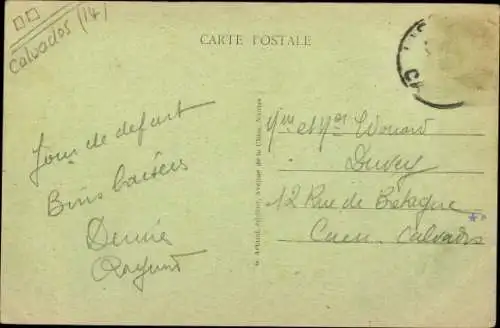 Calvados (14)
CARTE POSTALE
Jour de defart
Bons baisers
Denise
Raymond
G. Artaud, éditeur, Avenue de la Close, Nantes
Mme et Mr Edouard
Duvey
12 Rue de Bretagne
Caen. Calvados